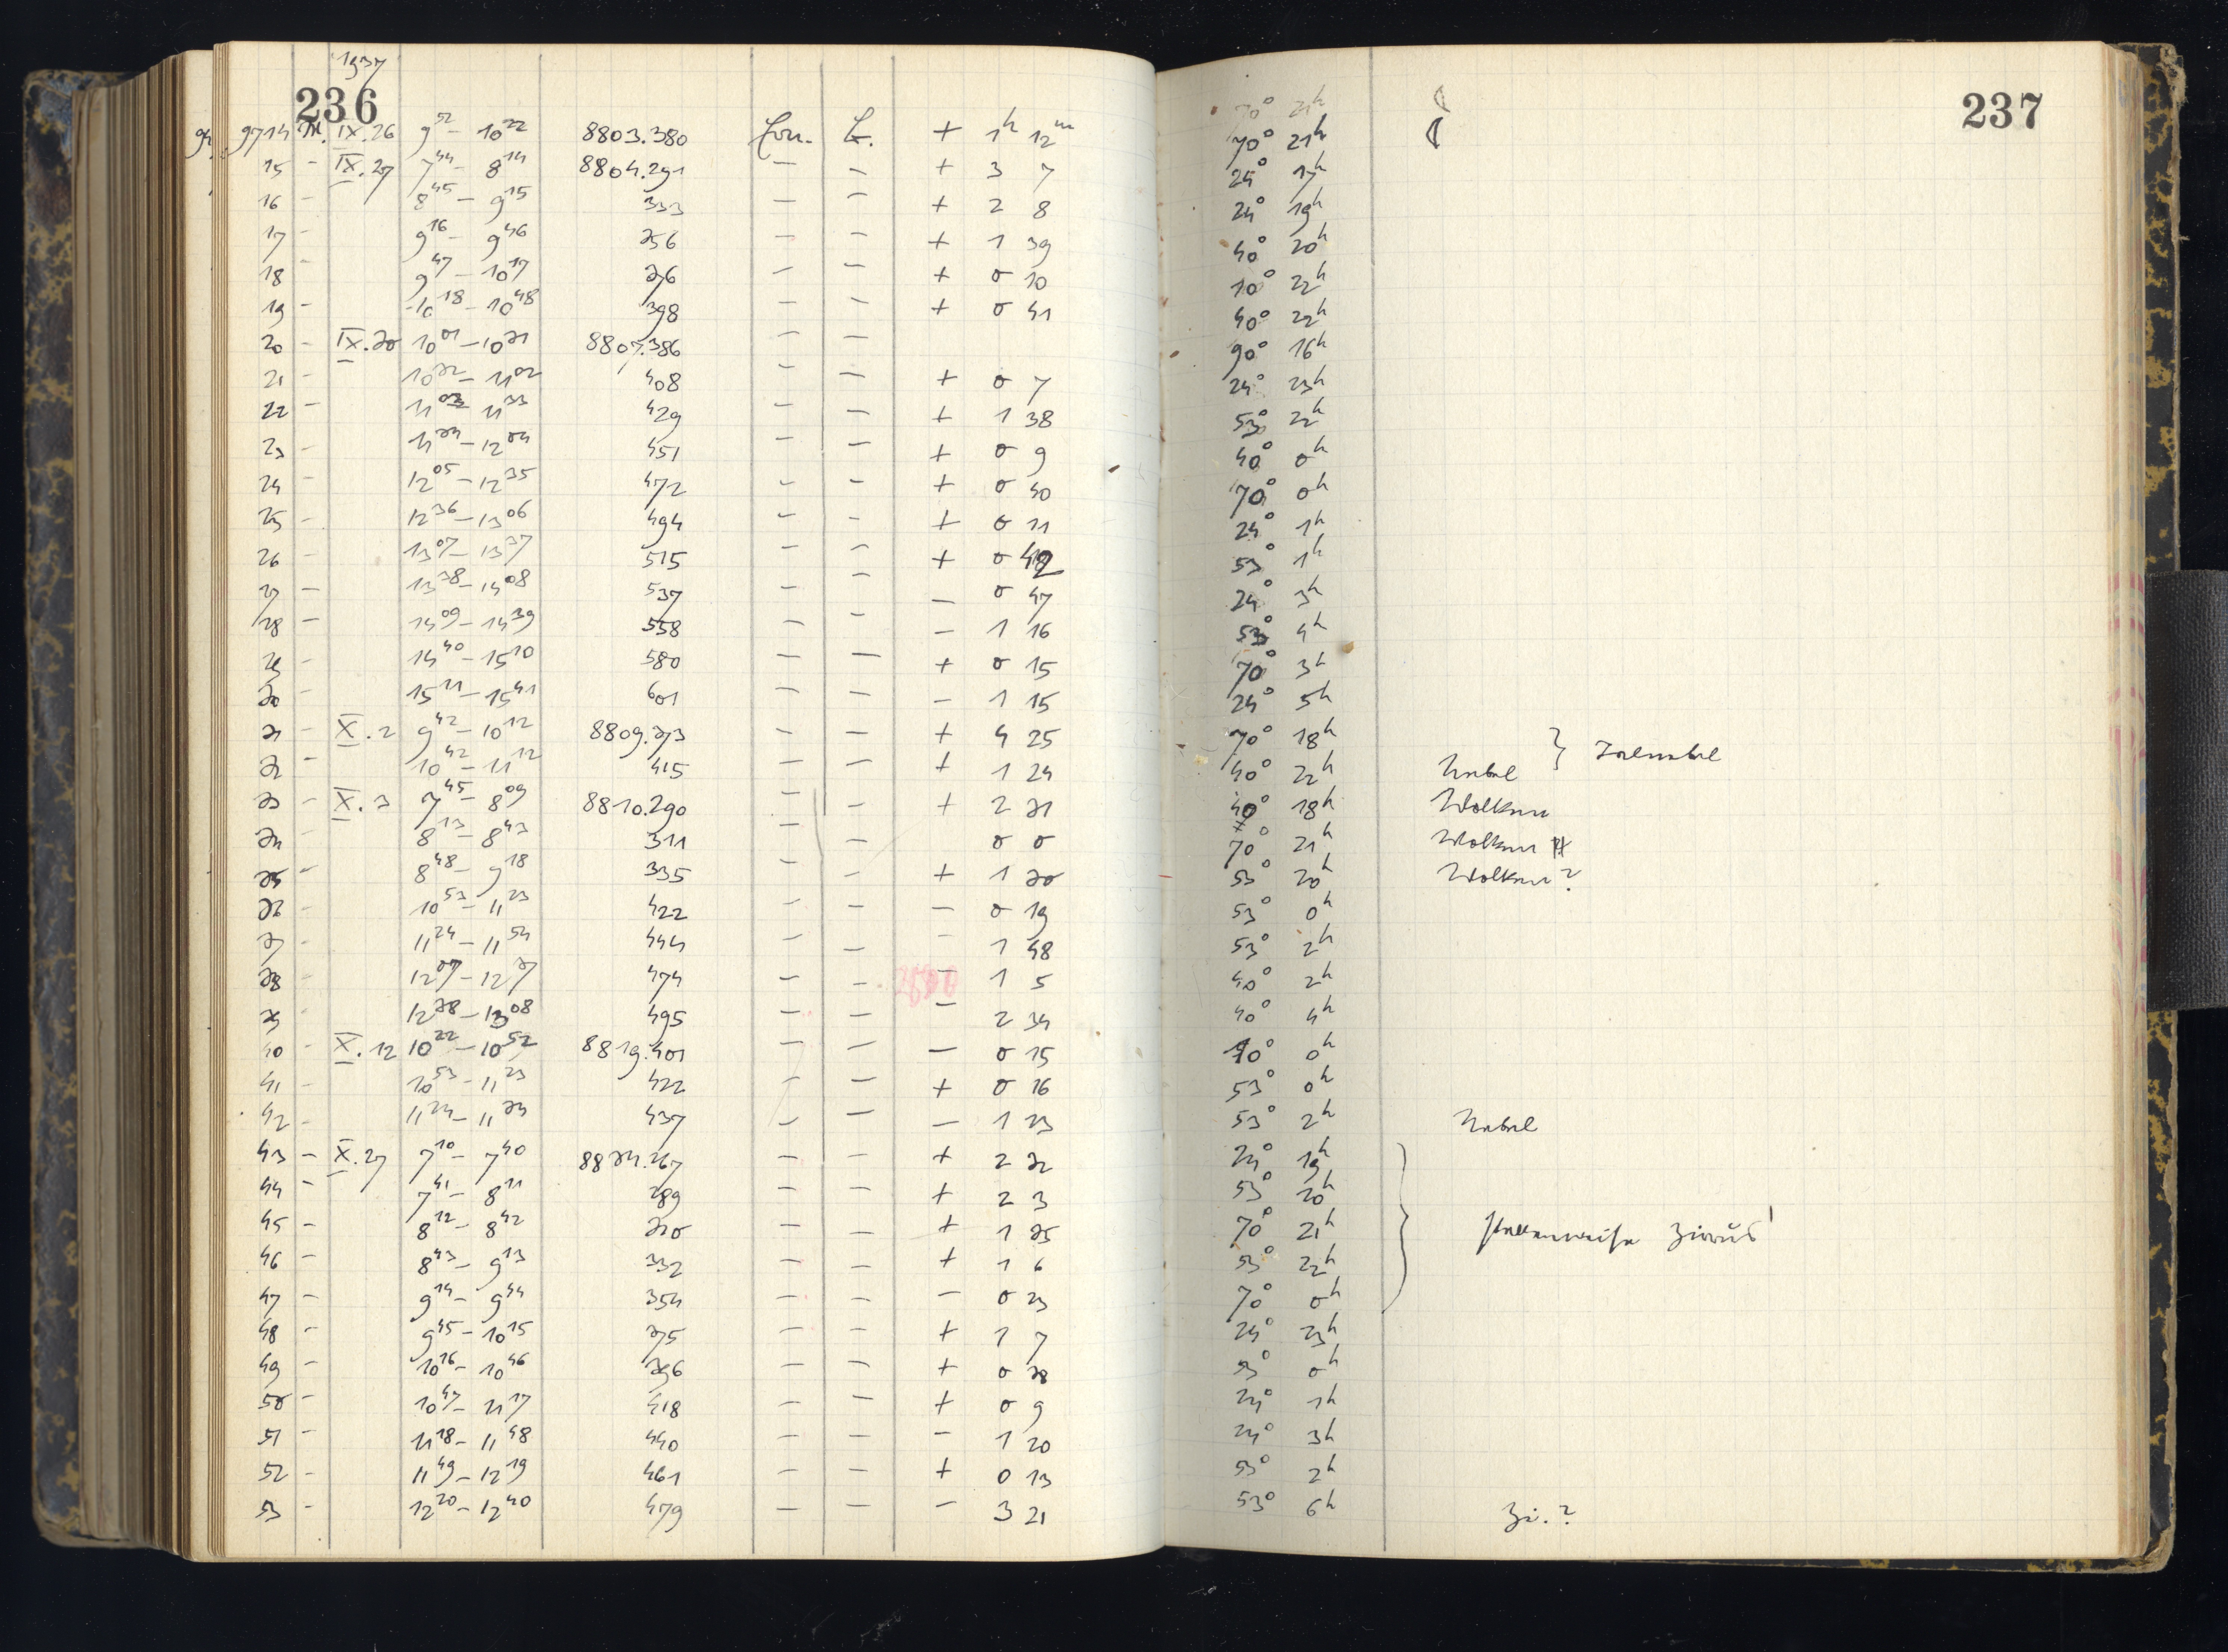 1937
236
237
9714 M. IX.26 9⁵² – 10²² 8803.380 Eon. L. + 1ʰ 12ᵐ 70° 21ʰ
15 – IX.27 7⁴⁴ – 8¹⁴ 8804.291 – – + 3 7 24° 17ʰ
16 – 8⁴⁵ – 9¹⁵ 333 – – + 2 8 24° 19ʰ
17 – 9¹⁶ – 9⁴⁶ 356 – – + 1 39 40° 20ʰ
18 – 9⁴⁷ – 10¹⁷ 376 – – + 0 10 10° 22ʰ
19 – 10¹⁸ – 10⁴⁸ 398 – – + 0 41 40° 22ʰ
20 – IX.30 10⁰¹ – 10³¹ 8807.386 – – 90° 16ʰ
21 – 10³² – 11⁰² 408 – – + 0 7 24° 23ʰ
22 – 11⁰³ – 11³³ 429 – – + 1 38 53° 22ʰ
23 – 11³⁴ – 12⁰⁴ 451 – – + 0 9 40° 0ʰ
24 – 12⁰⁵ – 12³⁵ 472 – – + 0 40 70° 0ʰ
25 – 12³⁶ – 13⁰⁶ 494 – – + 0 11 24° 1ʰ
26 – 13⁰⁷ – 13³⁷ 515 – – + 0 42 53° 1ʰ
27 – 13³⁸ – 14⁰⁸ 537 – – – 0 47 24° 3ʰ
28 – 14⁰⁹ – 14³⁹ 558 – – – 1 16 53° 4ʰ
29 – 14⁴⁰ – 15¹⁰ 580 – – + 0 15 70° 3ʰ
30 – 15¹¹ – 15⁴¹ 601 – – – 1 15 24° 5ʰ
31 – X.2 9⁴² – 10¹² 8809.373 – – + 4 25 70° 18ʰ } Talnebel
32 – 10⁴² – 11¹² 415 – – + 1 24 40° 22ʰ Nebel
33 – X.3 7⁴⁵ – 8⁰⁹ 8810.290 – – + 2 31 40° 18ʰ Wolken
34 – 8¹³ – 8⁴³ 311 – – 0 0 70° 21ʰ Wolken
35 – 8⁴⁸ – 9¹⁸ 335 – – + 1 30 53° 20ʰ Wolken?
36 – 10⁵³ – 11²³ 422 – – – 0 19 53° 0ʰ
37 – 11²⁴ – 11⁵⁴ 444 – – – 1 48 53° 2ʰ
38 – 12⁰⁷ – 12³⁷ 474 – – – 1 5 40° 2ʰ
39 – 12³⁸ – 13⁰⁸ 495 – – – 2 34 40° 4ʰ
40 – X.12 10²² – 10⁵² 8819.401 – – – 0 15 70° 0ʰ
41 – 10⁵³ – 11²³ 422 – – + 0 16 53° 0ʰ
42 – 11²⁴ – 11³⁴ 437 – – – 1 23 53° 2ʰ Nebel
43 – X.27 7¹⁰ – 7⁴⁰ 8834.267 – – + 2 32 24° 19ʰ
44 – 7⁴¹ – 8¹¹ 289 – – + 2 3 53° 20ʰ
45 – 8¹² – 8⁴² 310 – – + 1 35 70° 21ʰ stellenweise Zirrus!
46 – 8⁴³ – 9¹³ 332 – – + 1 6 53° 22ʰ
47 – 9¹⁴ – 9⁴⁴ 354 – – – 0 23 70° 0ʰ
48 – 9⁴⁵ – 10¹⁵ 375 – – + 1 7 24° 23ʰ
49 – 10¹⁶ – 10⁴⁶ 396 – – + 0 38 53° 0ʰ
50 – 10⁴⁷ – 11¹⁷ 418 – – + 0 9 24° 1ʰ
51 – 11¹⁸ – 11⁴⁸ 440 – – – 1 20 24° 3ʰ
52 – 11⁴⁹ – 12¹⁹ 461 – – + 0 13 53° 2ʰ
53 – 12²⁰ – 12⁴⁰ 479 – – – 3 21 53° 6ʰ Zi.?